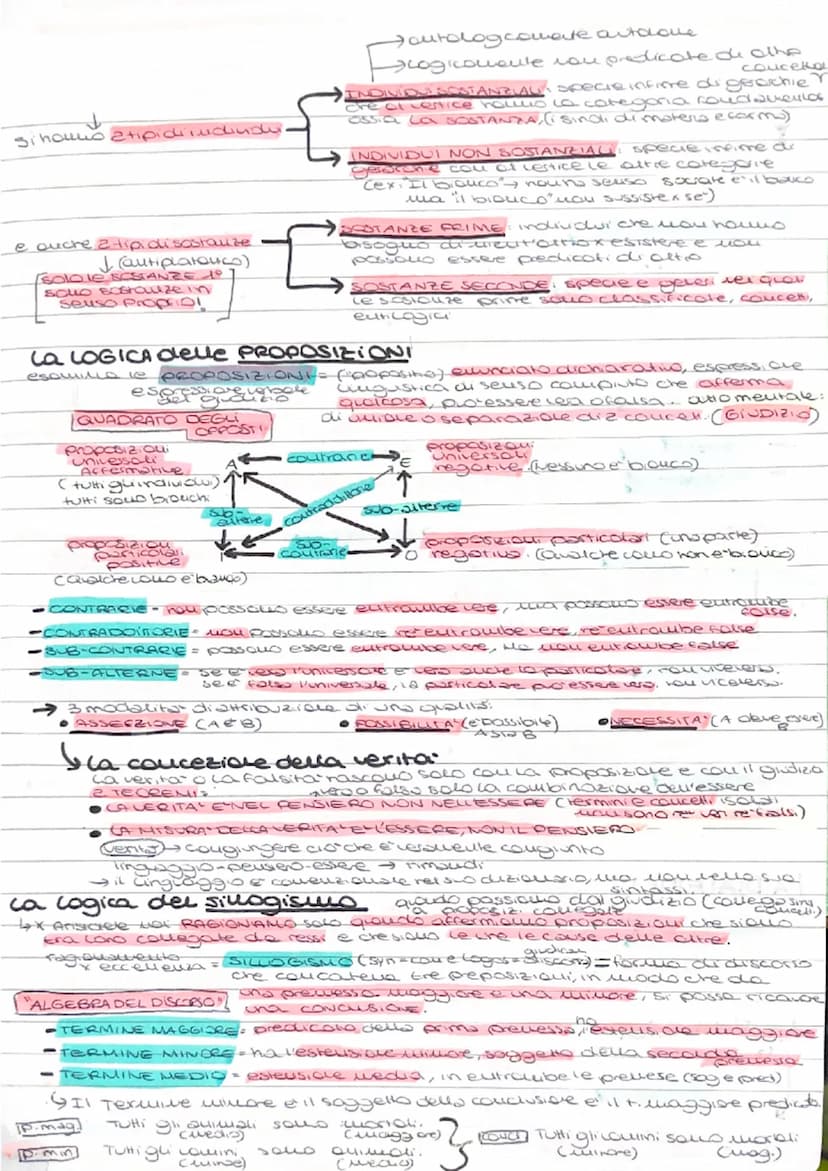 → ontologicamente autonome
→ logicamente non predicate di altro concetto
si hanno 2 tipi di individui
INDIVIDUI SOSTANZIALI: specie infime di gerarchie
che al vertice hanno la categoria fondamentale
ossia LA SOSTANZA (i sinoli di materia e forma)
INDIVIDUI NON SOSTANZIALI: specie infime di
gerarchie con al vertice le altre categorie
(ex: "Il bianco" →
ma "il bianco" non sussiste x sé)
e anche 2 tipi di sostanze
↓ (antiplatonico)
[SOLO LE SOSTANZE 1e
sono sostanze in
senso proprio!]
SOSTANZE PRIME: individui che non hanno
bisogno di nient'altro x esistere e non
possono essere predicati di altro
SOSTANZE SECONDE: specie e generi nei quali
le sostanze prime sono classificate, concetti,
enti logici
LA LOGICA delle PROPOSIZIONI
esamina le PROPOSIZIONI = enunciato dichiarativo, espressione
espressione verbale del giudizio
linguistica di senso compiuto che afferma
qualcosa, può essere vera o falsa... atto mentale:
di unione o separazione di 2 concetti. (GIUDIZIO)
QUADRATO DEGLI
OPPOSTI
proposizioni
universali
affermative
(tutti gli individui)
tutti sono bianchi
A ← contrarie → E
proposizioni
universali
negative (Nessuno è bianco)
sub-alterne
contraddittorie
sub-alterne
proposizioni
particolari
positive
(Qualche uomo è bianco)
I ← sub-contrarie → O
proposizioni particolari (una parte)
negative. (Qualche uomo non è bianco)
- CONTRARIE = non possono essere entrambe vere, ma possono essere entrambe false.
- CONTRADDITTORIE = non possono essere né entrambe vere, né entrambe false
- SUB-CONTRARIE = possono essere entrambe vere, ma non entrambe false
- SUB-ALTERNE = se è vera l'universale è vera anche la particolare, non viceversa.
se è falsa l'universale, la particolare può essere vera. non viceversa.
→ 3 modalità di attribuzione di una qualità:
• ASSERZIONE (A è B) • POSSIBILITÀ (è possibile A sia B) • NECESSITÀ (A deve essere B)
↳ La concezione della verità
La verità o la falsità nascono solo con la proposizione e con il giudizio
2 TEOREMI: vero o falso solo la combinazione dell'essere
• LA VERITÀ È NEL PENSIERO NON NELL'ESSERE (termini e concetti isolati non sono né veri né falsi)
• LA MISURA DELLA VERITÀ È L'ESSERE, NON IL PENSIERO
Verità → congiungere ciò che è veramente congiunto
linguaggio-pensiero-essere → rimandi
→ il linguaggio è convenzionale nel suo dizionario, ma non nella sua sintassi.
La logica del sillogismo
quando passiamo dal giudizio (collego sing concetti)
a proposizioni collegate
↳ x Aristotele noi RAGIONIAMO solo quando affermiamo proposizioni che siano
tra loro collegate da nessi e che siano le une le cause delle altre.
ragionamento
x eccellenza = SILLOGISMO (syn = con e logos = discorso) = forma di discorso
che concatena tre preposizioni, in modo che da
"ALGEBRA DEL DISCORSO" una premessa maggiore e una minore, si possa ricavare
una conclusione.
- TERMINE MAGGIORE = predicato della prima premessa, ha l'estensione maggiore
- TERMINE MINORE = ha l'estensione minore, soggetto della seconda premessa
- TERMINE MEDIO = estensione media, in entrambe le premesse (sog e pred)
↳ Il termine minore è il soggetto della conclusione e il t. maggiore predicato.
p. mag. Tutti gli animali sono mortali.
(medio) (maggiore)
p. min Tutti gli uomini sono animali.
(minore) (medio)
concl Tutti gli uomini sono mortali
(minore) (mag.)